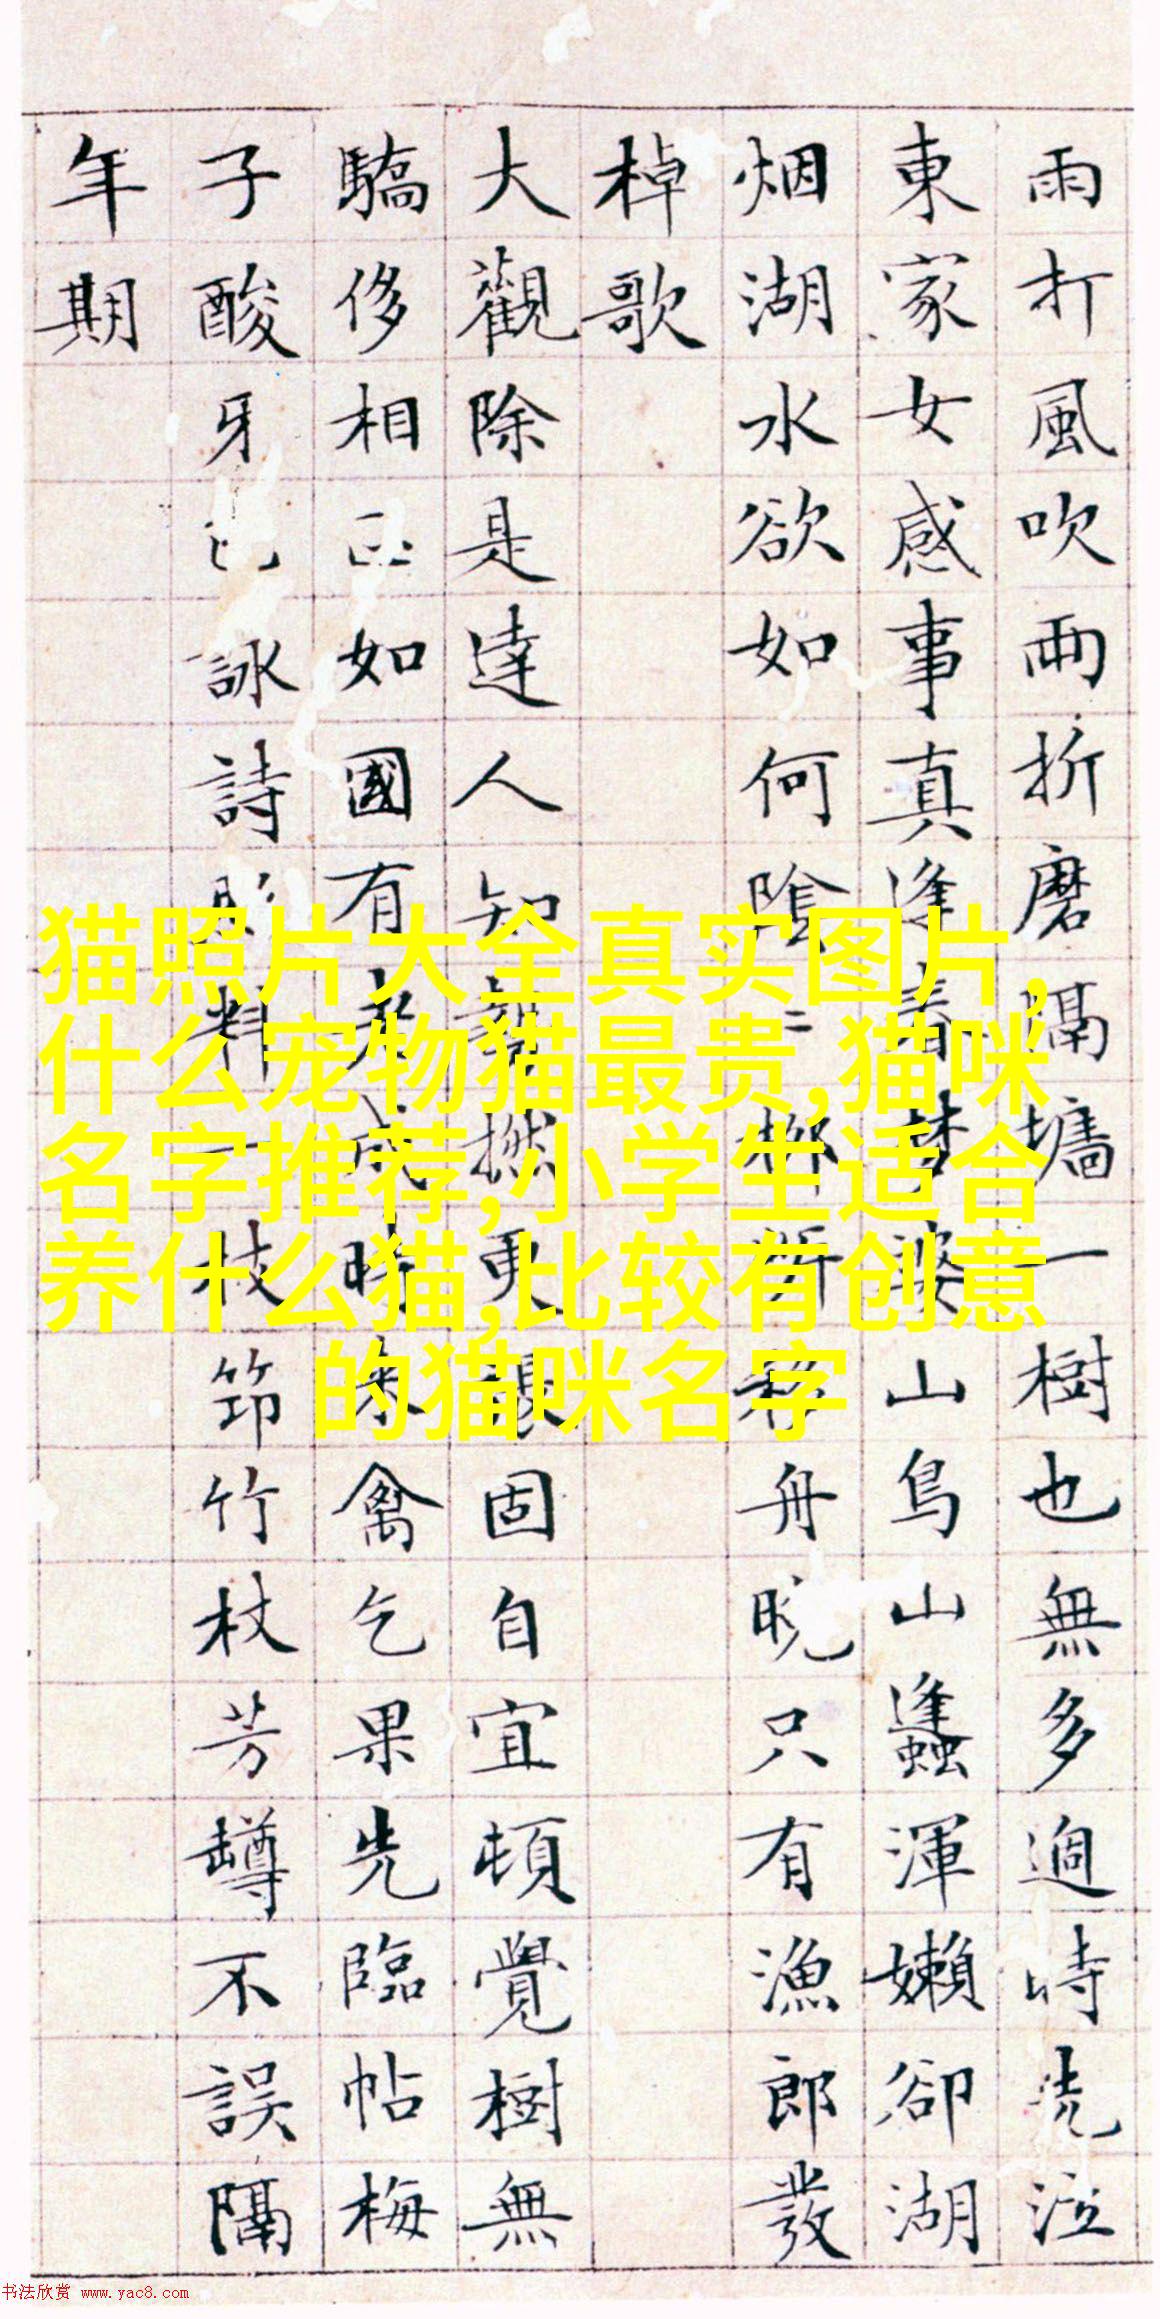 雨打風吹雨折磨隔墻一樹也無多過時洗泣
東家女感事真逢春夢婆山鳥山蠭渾嬾卻湖
烟湖水欲如何陰二柳所移舟晚只有漁郎發
棹歌
大觀除是達人知撚更張固自宜頓覺樹無
驕侈相如國有老成時来禽乞果先臨帖梅
子酸牙詠詩料一枝筇竹杖芳罇不誤隔
年期
猫照片大全真实图片,
什么宠物猫最贵,猫咪
名字推荐,小学生适合
养什么猫,比较有创意
的猫咪名字
书法欣赏 www.yac8.com